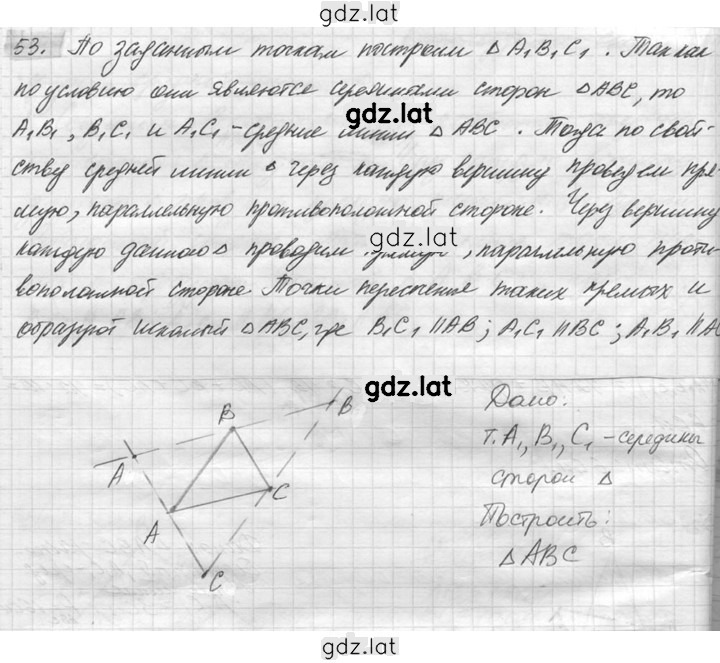 gdz.lat
53. По заданным точкам построим △ A₁B₁C₁. Так как
по условию они являются серединами сторон △ABC, то
gdz.lat
A₁B₁, B₁C₁ и A₁C₁ - средние линии △ ABC. Тогда по свой-
ству средней линии △ через каждую вершину проведем пря-
мую, параллельную противоположной стороне. Через вершину
каждую данного △ проводим прямую, параллельную проти-
gdz.lat
воположной стороне. Точки пересечения таких прямых и
образуют искомый △ABC, где B₁C₁ || AB; A₁C₁ || BC; A₁B₁ || AC
gdz.lat
B
B
A
C
A
C
Дано:
т. A₁, B₁, C₁ - середины
сторон △
Построить:
△ ABC
gdz.lat